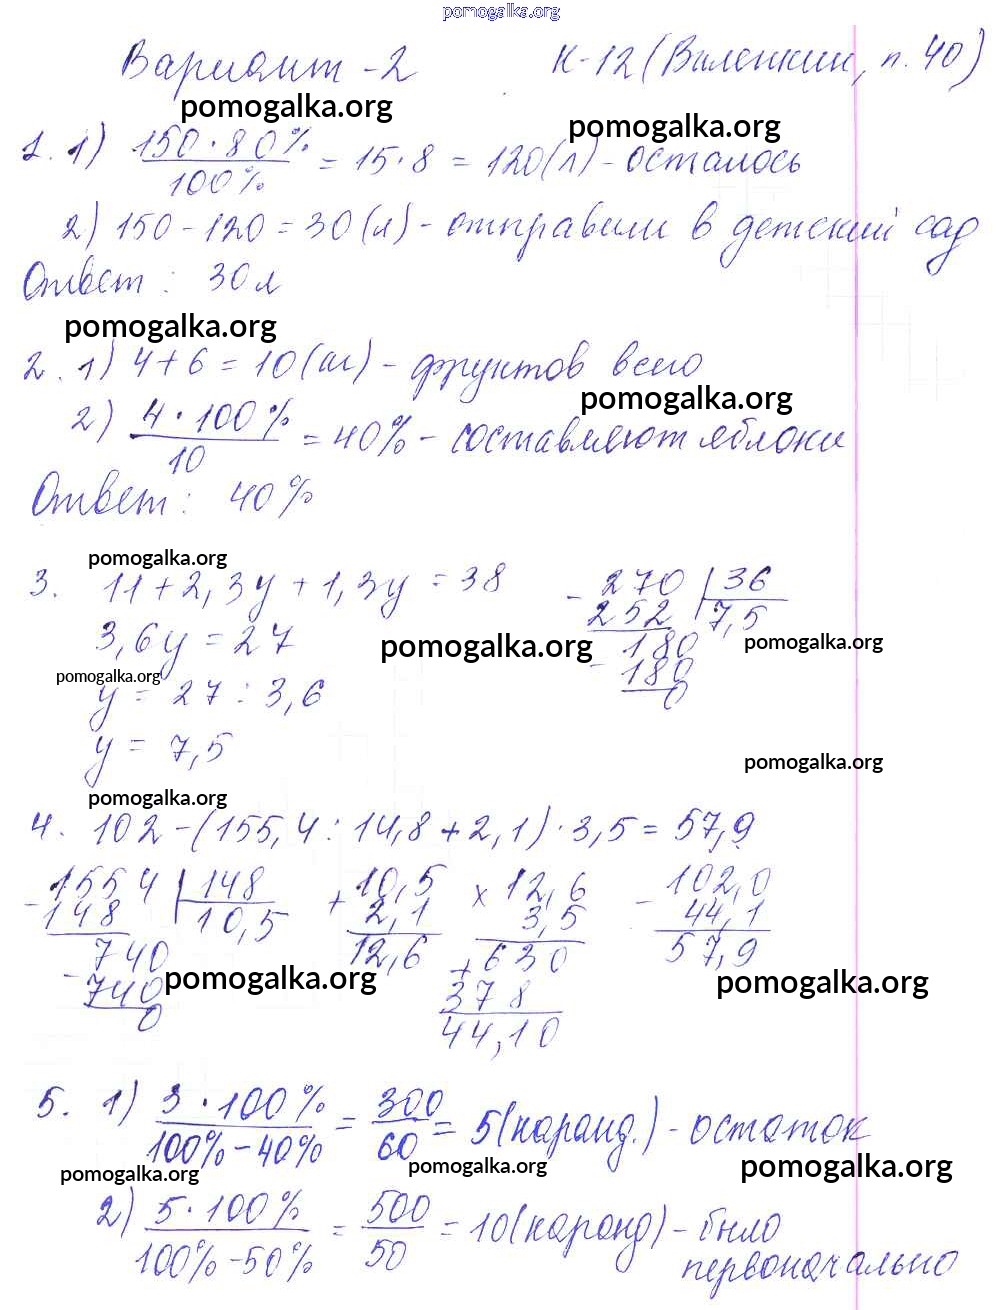 pomogalka.org
Вариант-2 К-12 (Виленкин, п. 40)
pomogalka.org pomogalka.org
1. 1) 150·80% / 100% = 15·8 = 120(л) - осталось
2) 150 - 120 = 30(л) - отправили в детский сад
Ответ: 30 л
pomogalka.org
2. 1) 4 + 6 = 10(кг) - фруктов всего
pomogalka.org
2) 4·100% / 10 = 40% - составляют яблоки
Ответ: 40%
pomogalka.org
3. 11 + 2,3y + 1,3y = 38
3,6y = 27
pomogalka.org pomogalka.org
pomogalka.org
y = 27 : 3,6
y = 7,5
- 270 | 36
252 | 7,5
- 180
180
0
pomogalka.org
pomogalka.org
4. 102 - (155,4 : 14,8 + 2,1)·3,5 = 57,9
- 1554 | 148
148 | 10,5
- 740
740
0
+ 10,5
2,1
12,6
× 12,6
3,5
+ 630
378
44,10
- 102,0
44,1
57,9
pomogalka.org pomogalka.org
5. 1) 3·100% / 100% - 40% = 300 / 60 = 5(каранд.) - остаток
pomogalka.org pomogalka.org pomogalka.org
2) 5·100% / 100% - 50% = 500 / 50 = 10(каранд) - было
первоначально